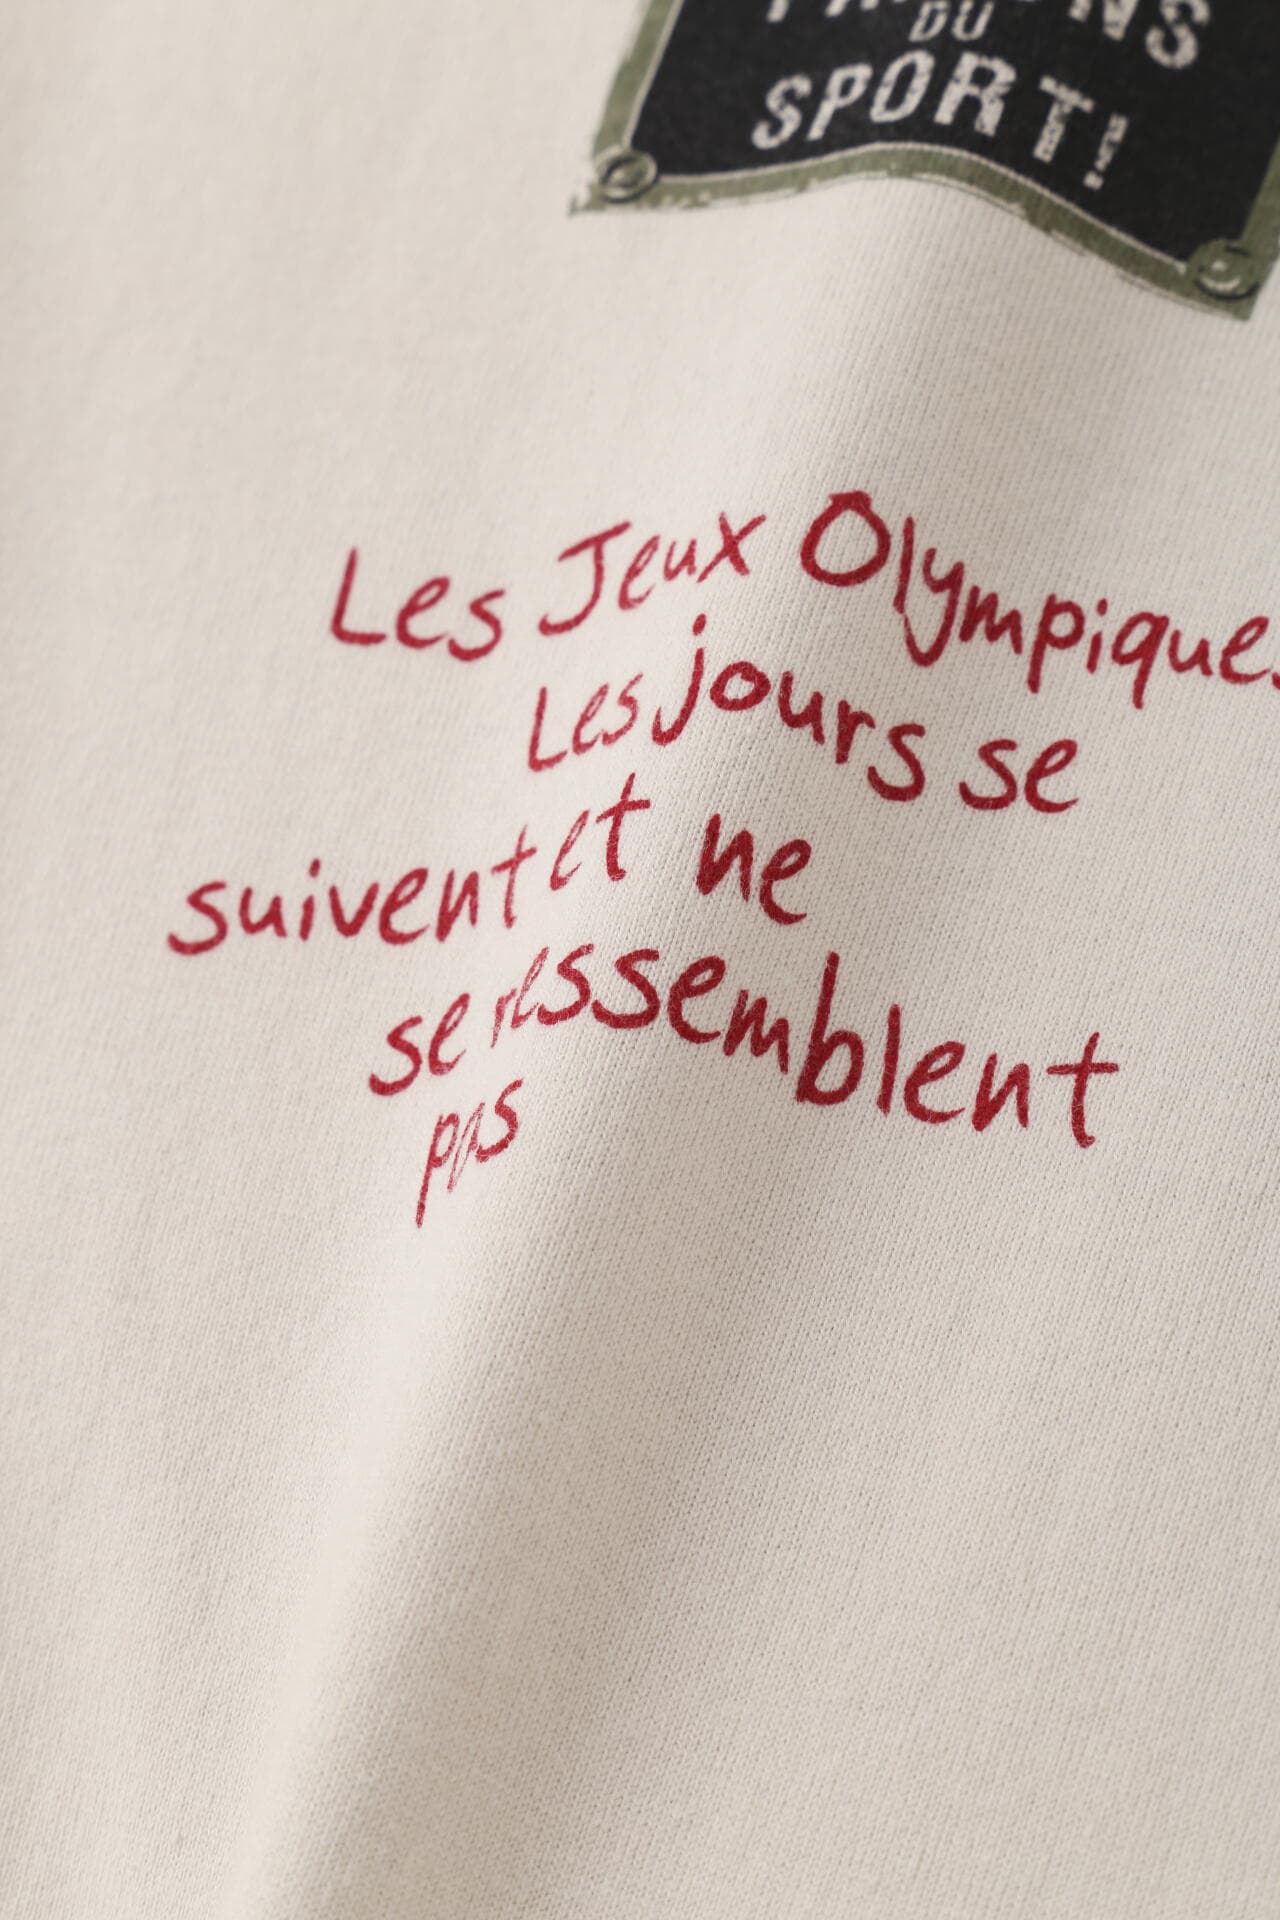 DU
SPORT!
Les Jeux Olympiques
Les jours se
suivent et ne
se ressemblent
pas